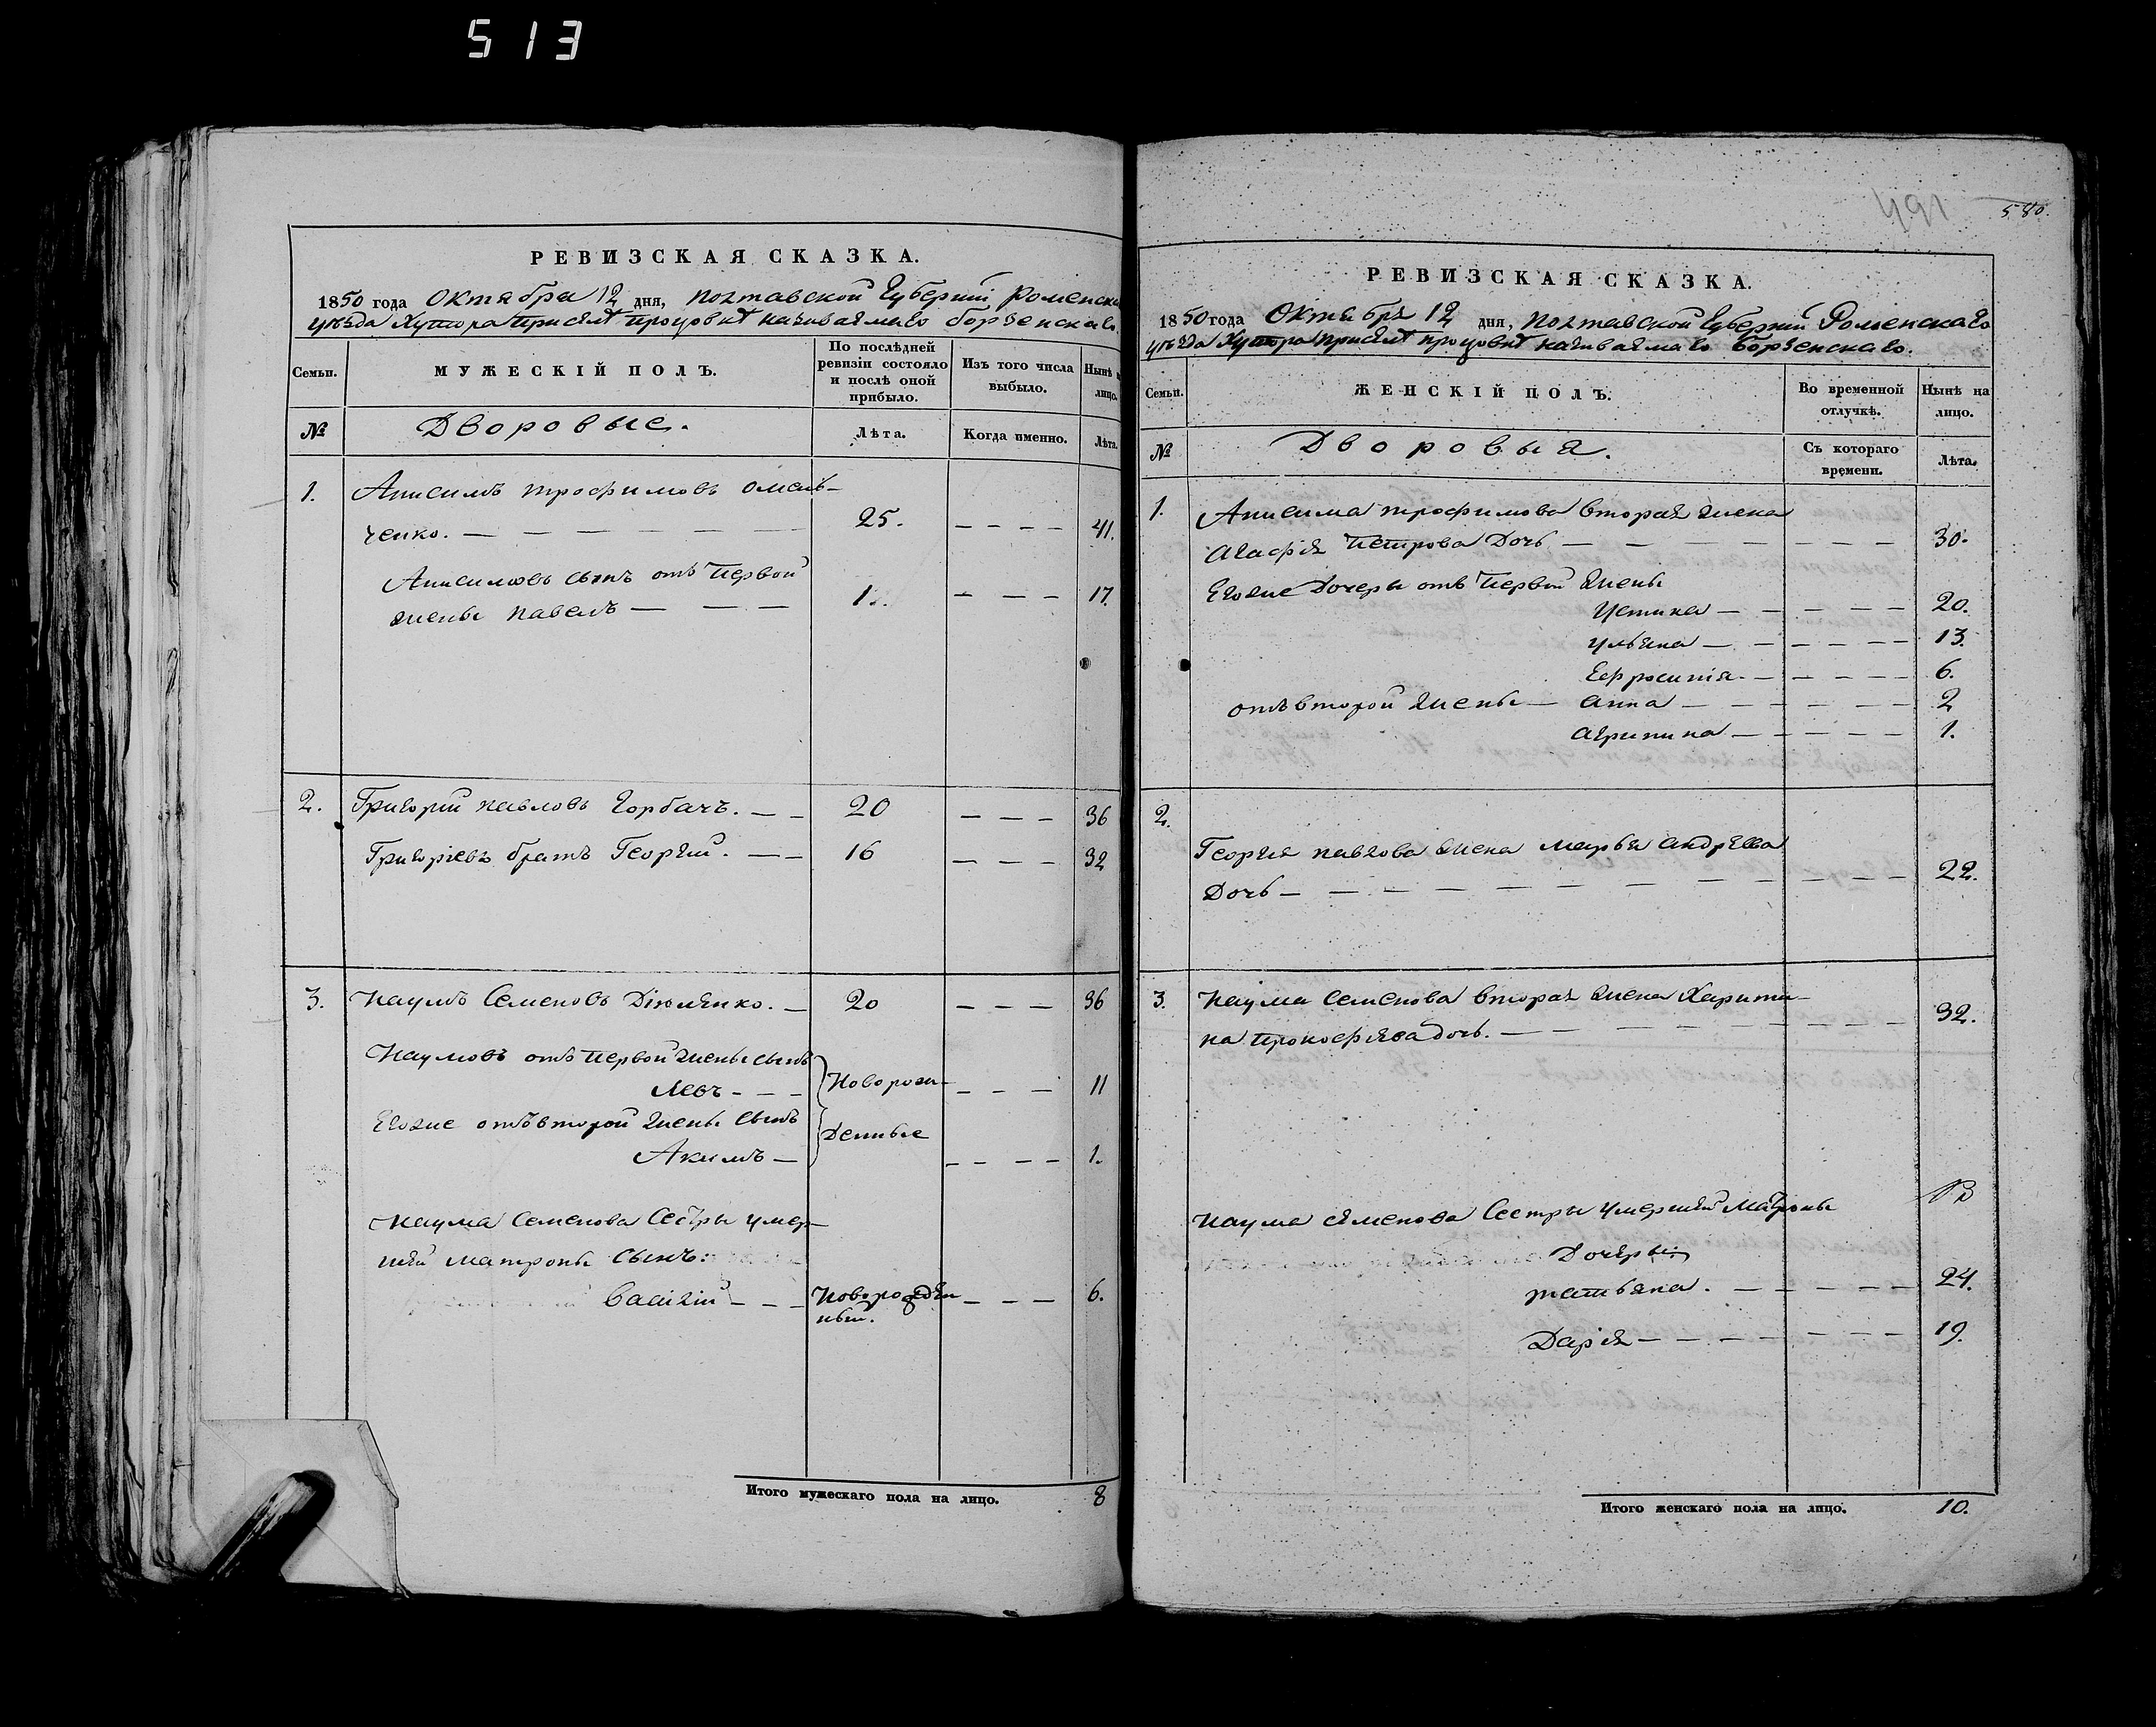 513
РЕВИЗСКАЯ СКАЗКА.
1850 года Октября 12 дня, Полтавской Губерніи Роменска
уѣзда Хутора при селѣ Процовкѣ называемаго Борзенскаго.
Семьи.
МУЖЕСКІЙ ПОЛЪ.
По послѣдней ревизіи состояло и послѣ оной прибыло.
Изъ того числа выбыло.
Нынѣ н лицо.
№
Дворовые.
Лѣта.
Когда именно.
Лѣта.
1. Анисимъ Трофимовъ Омель-
ченко. 25. 41.
Анисимовъ сынъ отъ первой
жены Павелъ 1. 17.
2. Григорій Павловъ Горбачъ. 20 36
Григоріевъ братъ Георгій. 16 32
3. Наумъ Семеновъ Дінменко. 20 36
Наумовъ отъ первой жены сынъ
Левъ Новорож- 11
Егоже отъ второй жены сынъ
денные
Акимъ 1.
Наума Семенова Сестры умер-
шей Матроны Сынъ:
Василій Новорожден 6.
ный.
Итого мужескаго пола на лицо. 8
491 580.
РЕВИЗСКАЯ СКАЗКА.
1850 года Октября 12 дня, Полтавской Губерніи Роменскаго
уѣзда Хутора при селѣ Процовкѣ называемаго Борзенскаго.
Семьи.
ЖЕНСКІЙ ПОЛЪ.
Во временной отлучкѣ.
Нынѣ на лицо.
№
Дворовыя.
Съ котораго времени.
Лѣта.
1. Анисима Трофимова вторая жена
Агафія Петрова Дочь 30.
Егоже Дочери отъ первой жены
Устина 20.
Ульяна 13.
Ефросинія 6.
отъ второй жены Анна 2
Агрипина 1.
2.
Георгія Павлова жена Марья Андрѣева
Дочь 22.
3. Наума Семенова вторая жена Харити-
на Прокофѣева дочь. 32.
Наума Семенова Сестры умершей Матроны
Дочери
Татьяна. 24.
Дарія 19.
Итого женскаго пола на лицо. 10.